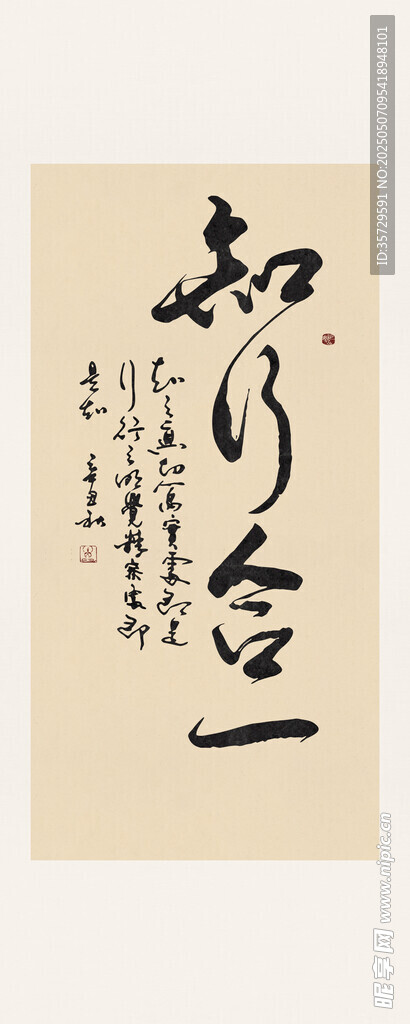 知行合一
知之真切篤實處即是
行行之明覺精察處即
是知 辛丑秋
ID:35729591 NO:20250507095418948101
昵享网 www.nipic.cn